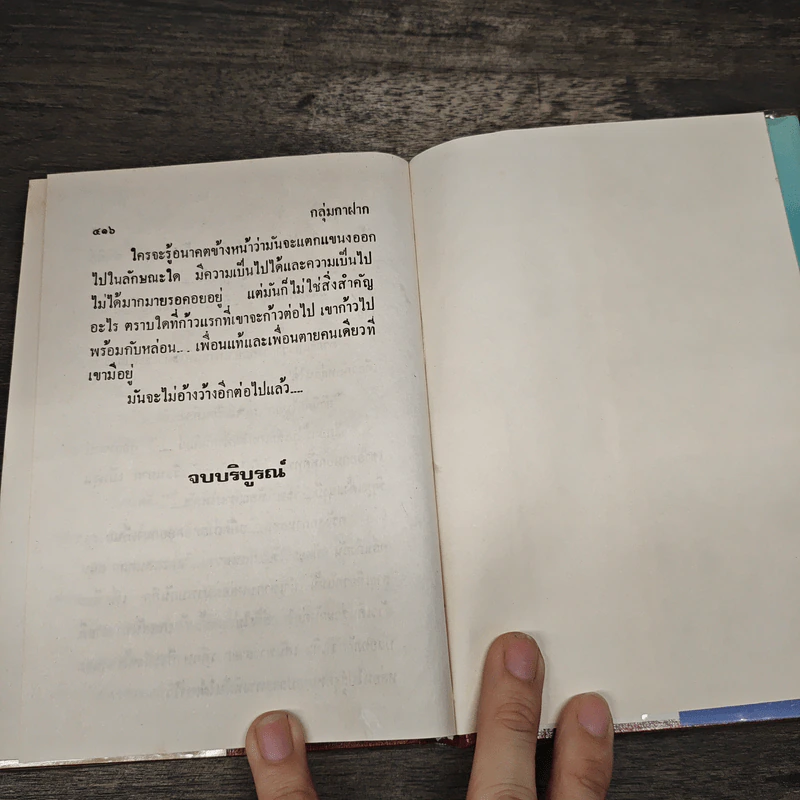 กลุ่มกาฝาก
๔๑๖
ใครจะรู้อนาคตข้างหน้าว่ามันจะแตกแขนงออก
ไปในลักษณะใด มีความเป็นไปได้และความเป็นไป
ไม่ได้มากมายรอคอยอยู่ แต่มันก็ไม่ใช่สิ่งสำคัญ
อะไร ตราบใดที่ก้าวแรกที่เขาจะก้าวต่อไป เขาก้าวไป
พร้อมกับหล่อน... เพื่อนแท้และเพื่อนตายคนเดียวที่
เขามีอยู่
มันจะไม่อ้างว้างอีกต่อไปแล้ว....
จบบริบูรณ์